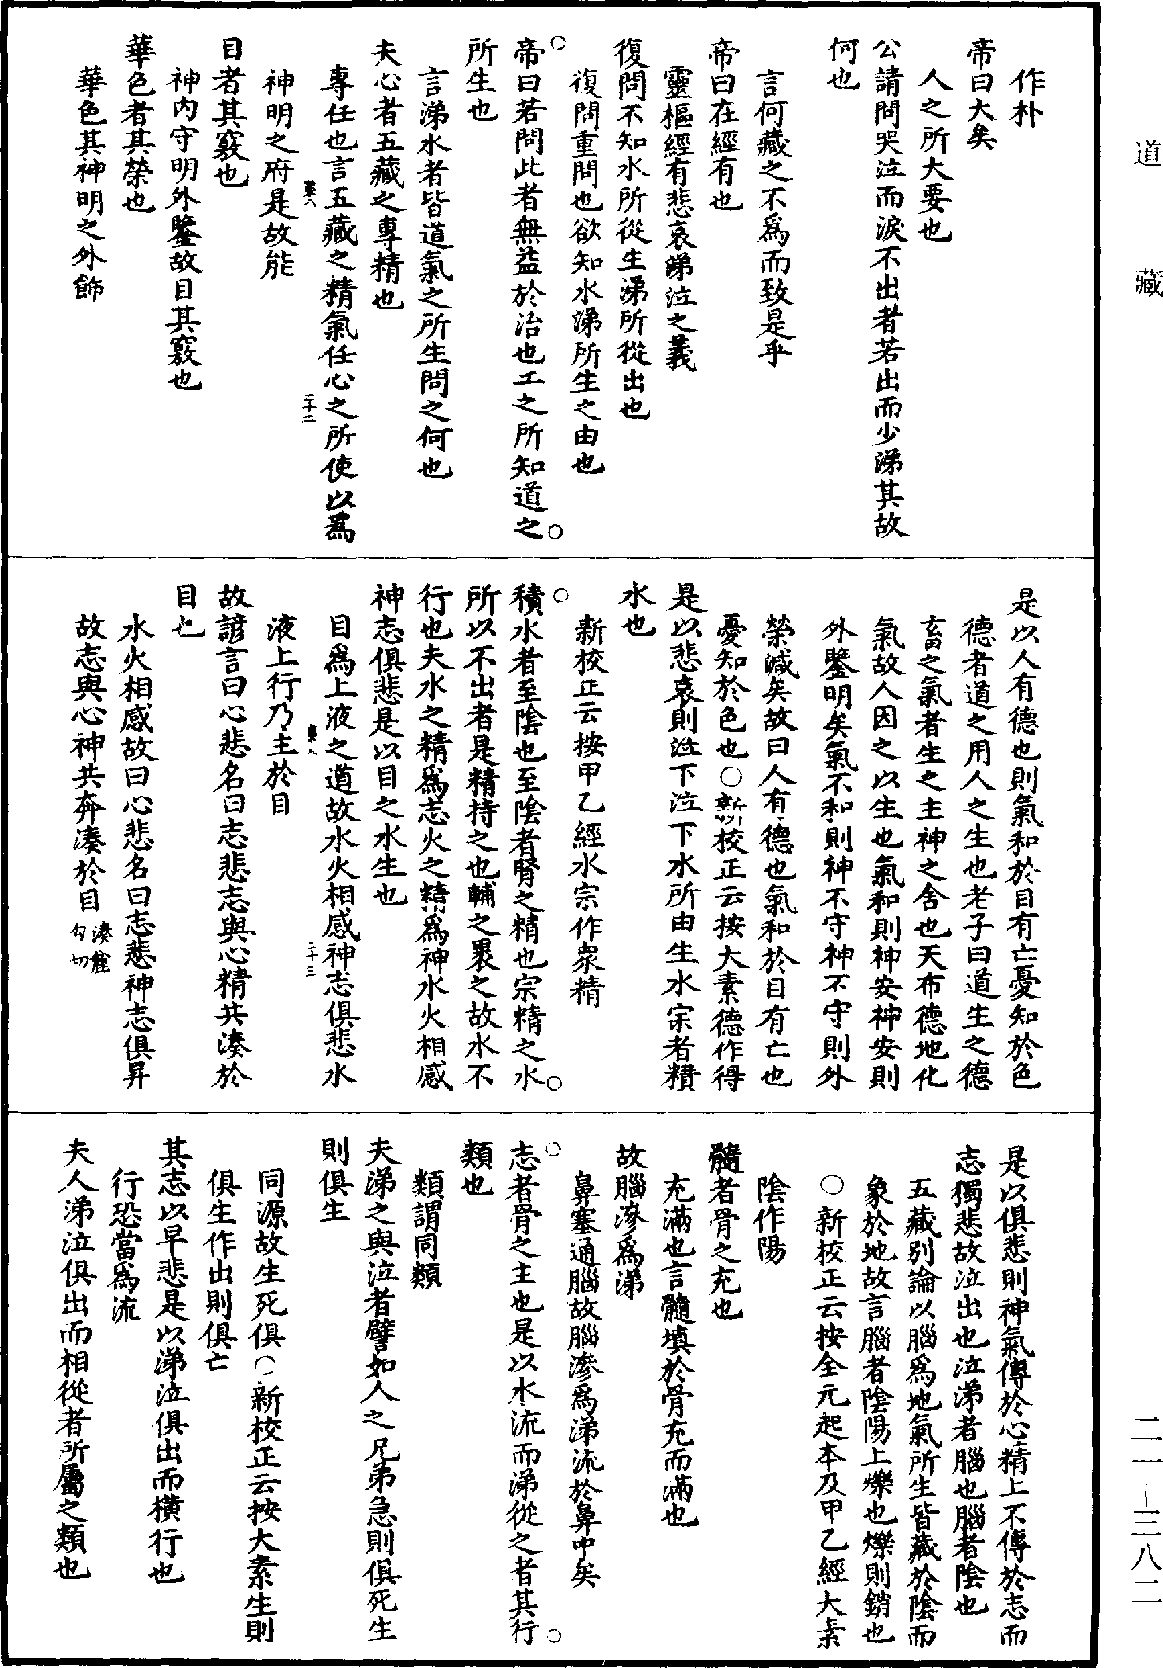 道藏
作朴
帝曰大矣
人之所大要也
公請問哭泣而淚不出者若出而少涕其故
何也
言何藏之不爲而致是乎
帝曰在經有也
靈樞經有悲哀涕泣之義
復問不知水所從生涕所從出也
復問重問也欲知水涕所生之由也
帝曰若問此者無益於治也工之所知道之
所生也
言涕水者皆道氣之所生問之何也
夫心者五藏之專精也
專任也言五藏之精氣任心之所使以爲
神明之府是故能
目者其竅也
神內守明外鑒故目其竅也
華色者其榮也
華色其神明之外飾
是以人有德也則氣和於目有亡憂知於色
德者道之用人之生也老子曰道生之德
畜之氣者生之主神之舍也天布德地化
氣故人因之以生也氣和則神安神安則
外鑒明矣氣不和則神不守神不守則外
榮減矣故曰人有德也氣和於目有亡也
憂知於色也○新校正云按大素德作得
是以悲哀則泣下泣下水所由生水宗者積
水也
新校正云按甲乙經水宗作衆精
積水者至陰也至陰者腎之精也宗精之水
所以不出者是精持之也輔之裹之故水不
行也夫水之精爲志火之精爲神水火相感
神志俱悲是以目之水生也
目爲上液之道故水火相感神志俱悲水
液上行乃主於目
故諺言曰心悲名曰志悲志與心精共湊於
目也
水火相感故曰心悲名曰志悲神志俱昇
故志與心神共奔湊於目
是以俱悲則神氣傳於心精上不傳於志而
志獨悲故泣出也泣涕者腦也腦者陰也
五藏別論以腦爲地氣所生皆藏於陰而
象於地故言腦者陰陽上爍也爍則銷也
○新校正云按全元起本及甲乙經大素
陰作陽
髓者骨之充也
充滿也言髓填於骨充而滿也
故腦滲爲涕
鼻塞通腦故腦滲爲涕流於鼻中矣
志者骨之主也是以水流而涕從之者其行
類也
類謂同類
夫涕之與泣者譬如人之兄弟急則俱死生
則俱生
同源故生死俱○新校正云按大素生則
俱生作出則俱亡
其志以早悲是以涕泣俱出而橫行也
行恐當爲流
夫人涕泣俱出而相從者所屬之類也
二一-三八二